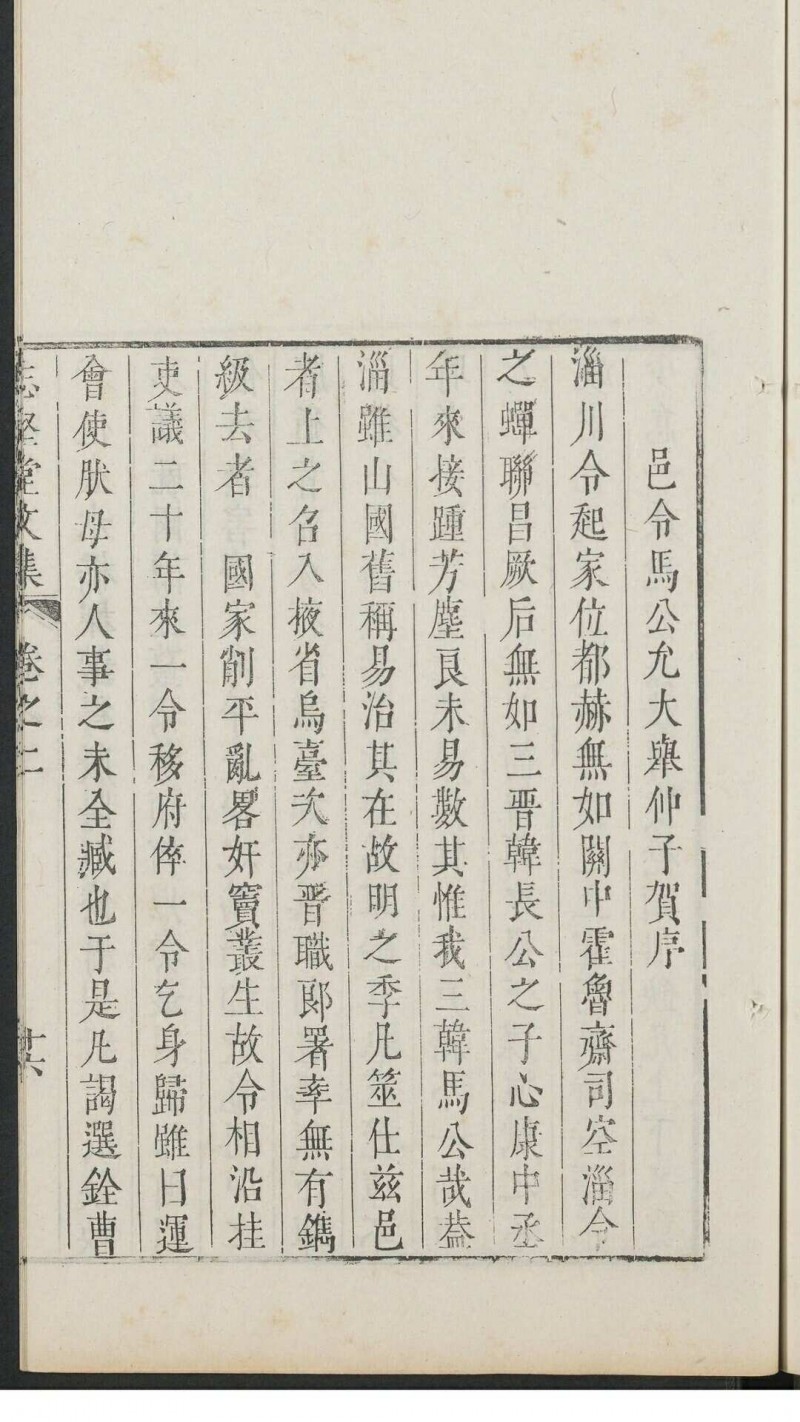 邑令馬公允大舉仲子賀序
淄川令起家位都赫無如關中霍魯齋司空淄令
之蟬聯昌厥后無如三晋韓長公之子心康中丞
年來接踵芳塵良未易數其惟我三韓馬公哉蓋
淄雖山國舊稱易治其在故明之季凡筮仕兹邑
者上之名入掖省烏臺次亦晋職郎署率無有鐫
級去者 國家削平亂畧奸竇叢生故令相沿挂
吏議二十年來一令移府倅一令乞身歸雖曰運
會使肰毋亦人事之未全臧也于是凡謁選銓曹
志壑堂文集 卷之二 廿六